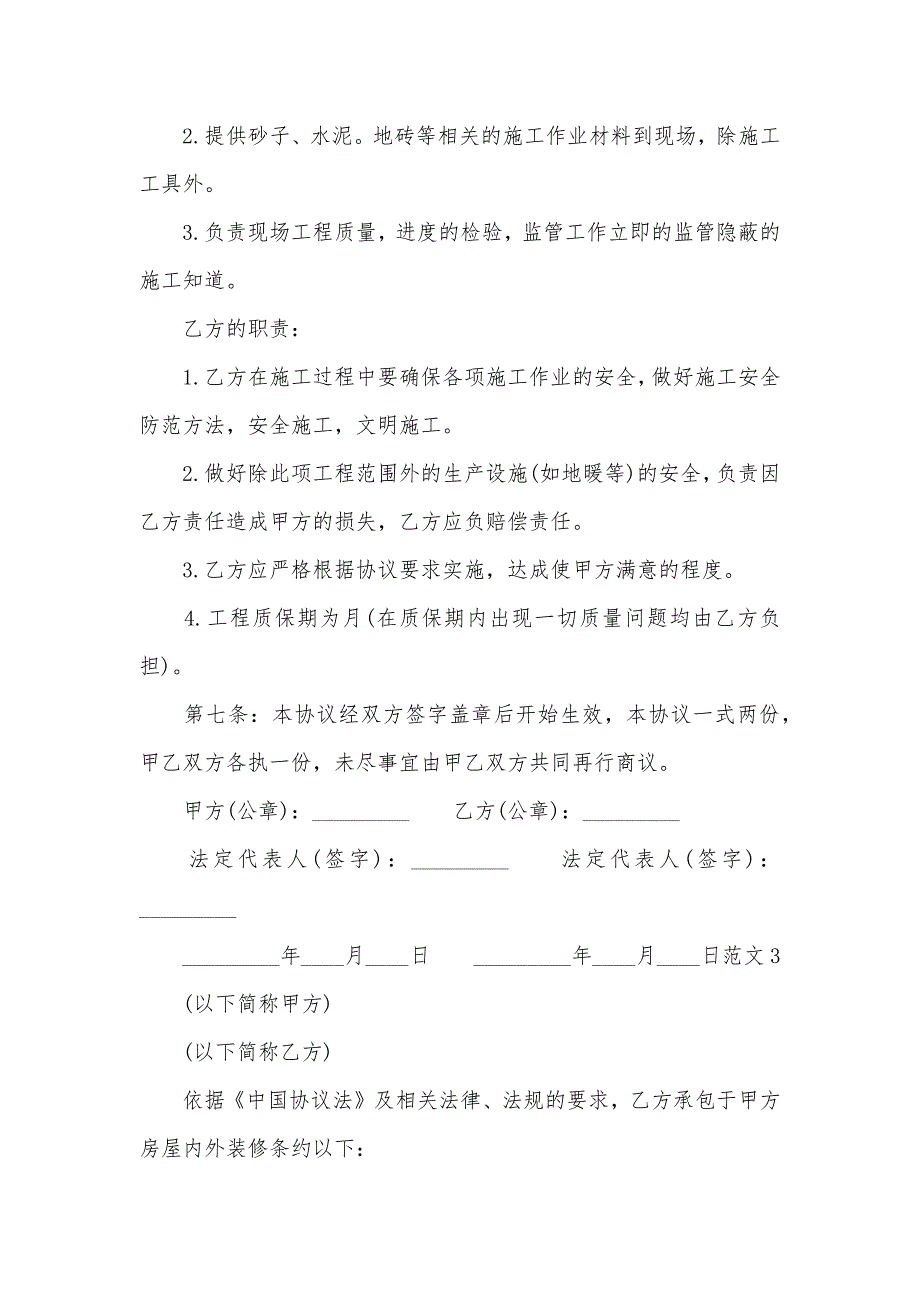 2.提供砂子、水泥。地砖等相关的施工作业材料到现场，除施工
工具外。
3.负责现场工程质量，进度的检验，监管工作立即的监管隐蔽的
施工知道。
乙方的职责：
1.乙方在施工过程中要确保各项施工作业的安全，做好施工安全
防范方法，安全施工，文明施工。
2.做好除此项工程范围外的生产设施(如地暖等)的安全，负责因
乙方责任造成甲方的损失，乙方应负赔偿责任。
3.乙方应严格根据协议要求实施，达成使甲方满意的程度。
4.工程质保期为月(在质保期内出现一切质量问题均由乙方负
担)。
第七条：本协议经双方签字盖章后开始生效，本协议一式两份，
甲乙双方各执一份，未尽事宜由甲乙双方共同再行商议。
甲方(公章)：_________　　乙方(公章)：_________
法定代表人(签字)：_________　　法定代表人(签字)：
_________
_________年____月____日　　_________年____月____日范文3
(以下简称甲方)
(以下简称乙方)
依据《中国协议法》及相关法律、法规的要求，乙方承包于甲方
房屋内外装修条约以下：